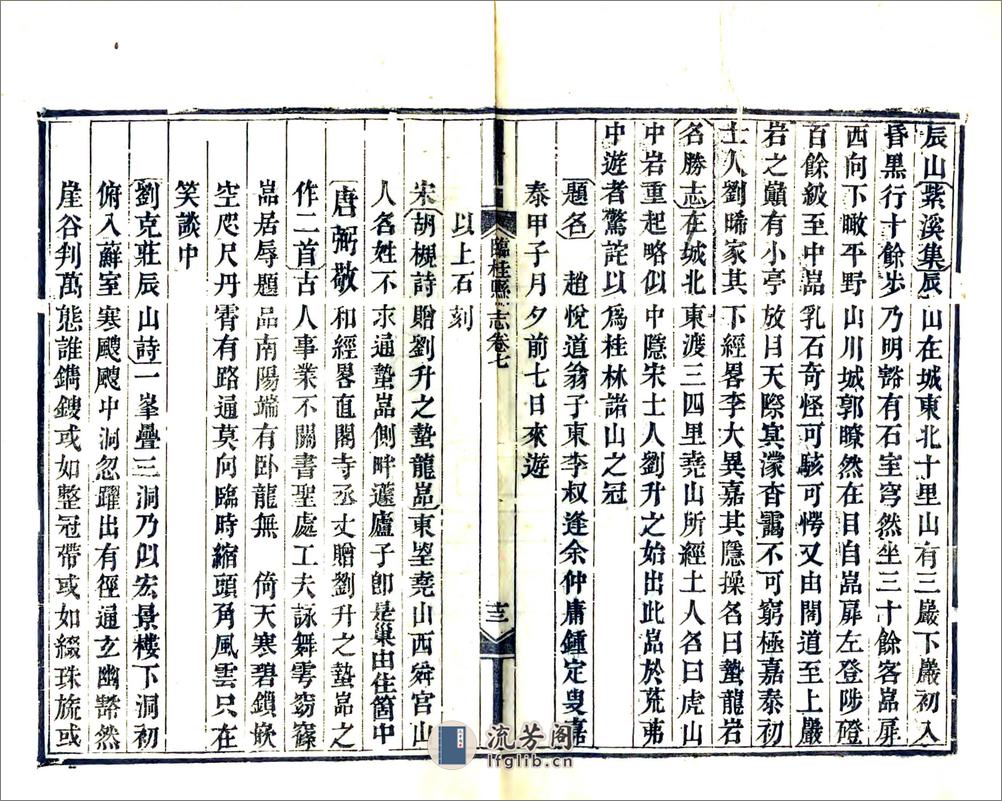 辰山紫溪集辰山在城東北十里山有三巖下巖初入
昏黑行十餘步乃明豁有石室穹然坐三十餘客嵓扉
西向下瞰平野山川城郭瞭然在目自嵓扉左登陟磴
百餘級至中嵓乳石奇怪可駭可愕又由閣道至上巖
岩之巔有小亭放目天際冥濛杳靄不可窮極嘉泰初
士人劉晞家其下經畧李大異嘉其隱操名曰蟄龍岩
名勝志在城北東渡三四里堯山所經土人名曰虎山
中岩重起略似中隱宋士人劉升之始出此嵓於荒茀
中遊者驚詫以爲桂林諸山之冠
題名 趙悅道翁子東李叔逢余仲庸鍾定叟嘉
泰甲子月夕前七日來遊
臨桂縣志卷七
十三
以上石刻
宋胡槻詩贈劉升之蟄龍嵓東望堯山西舜宮山
人名姓不求通蟄嵓側畔蘧廬子卽是巢由住箇中
唐弼敬和經畧直閣寺丞丈贈劉升之蟄嵓之
作二首古人事業不關書聖處工夫詠舞雩窈窱
嵓居辱題品南陽端有卧龍無 倚天寒碧鎖嵌
空咫尺丹霄有路通莫向臨時縮頭角風雲只在
笑談中
劉克莊辰山詩一峯疊三洞乃似宏景樓下洞初
俯入蘚室寒颼颼中洞忽躍出有徑通玄幽豁然
崖谷判萬態誰鐫鎪或如整冠帶或如綴珠旒或
流芳阁
lfglib.cn